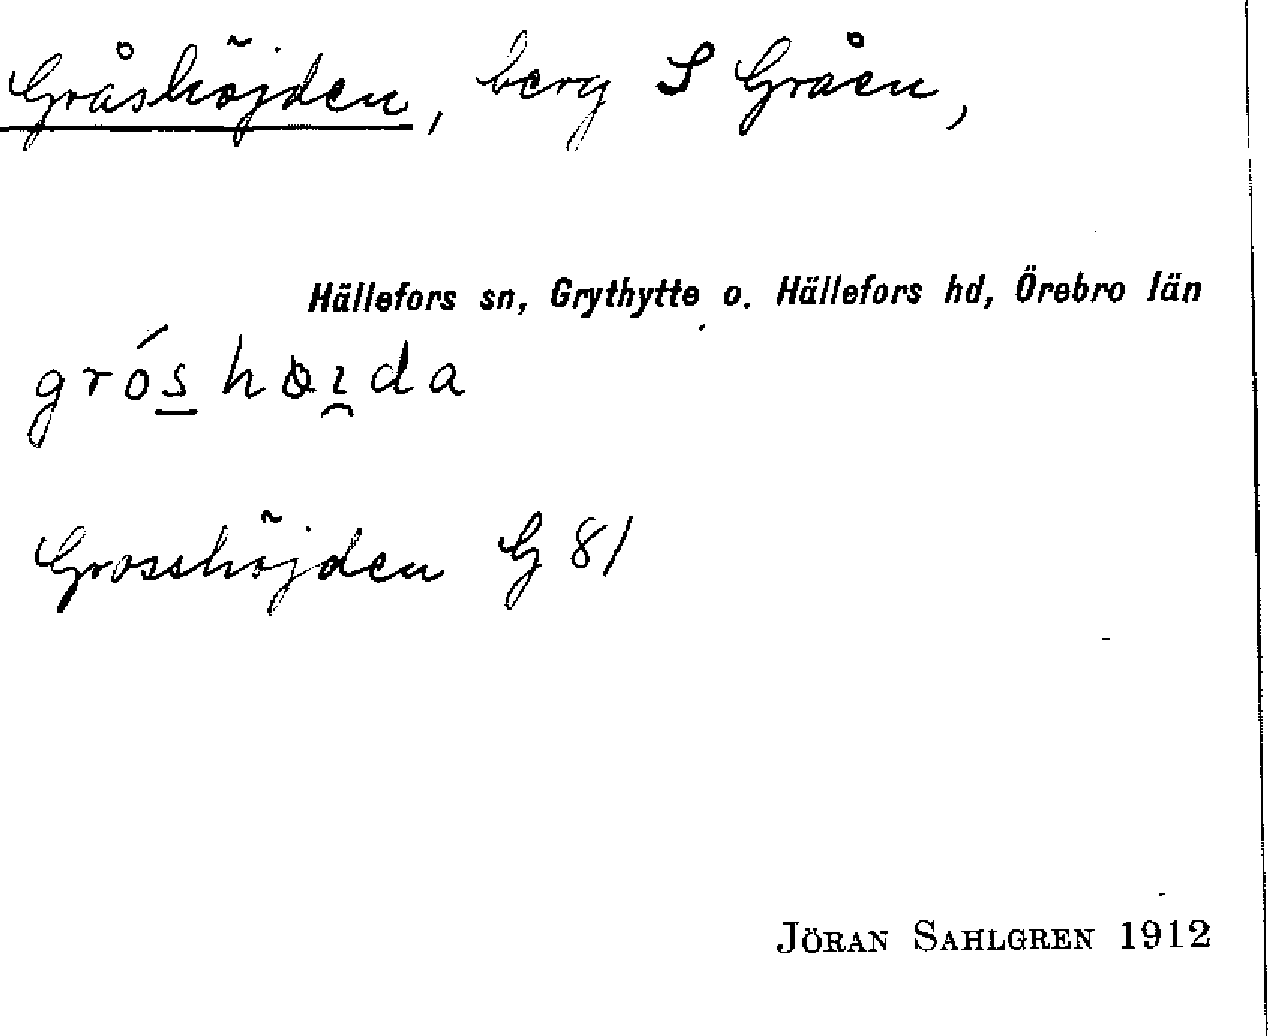 Gråshöjden, berg S Gråen,
Hällefors sn, Grythytte o. Hällefors hd, Örebro län
Grosshöjden G 81
JÖRAN SAHLGREN 1912